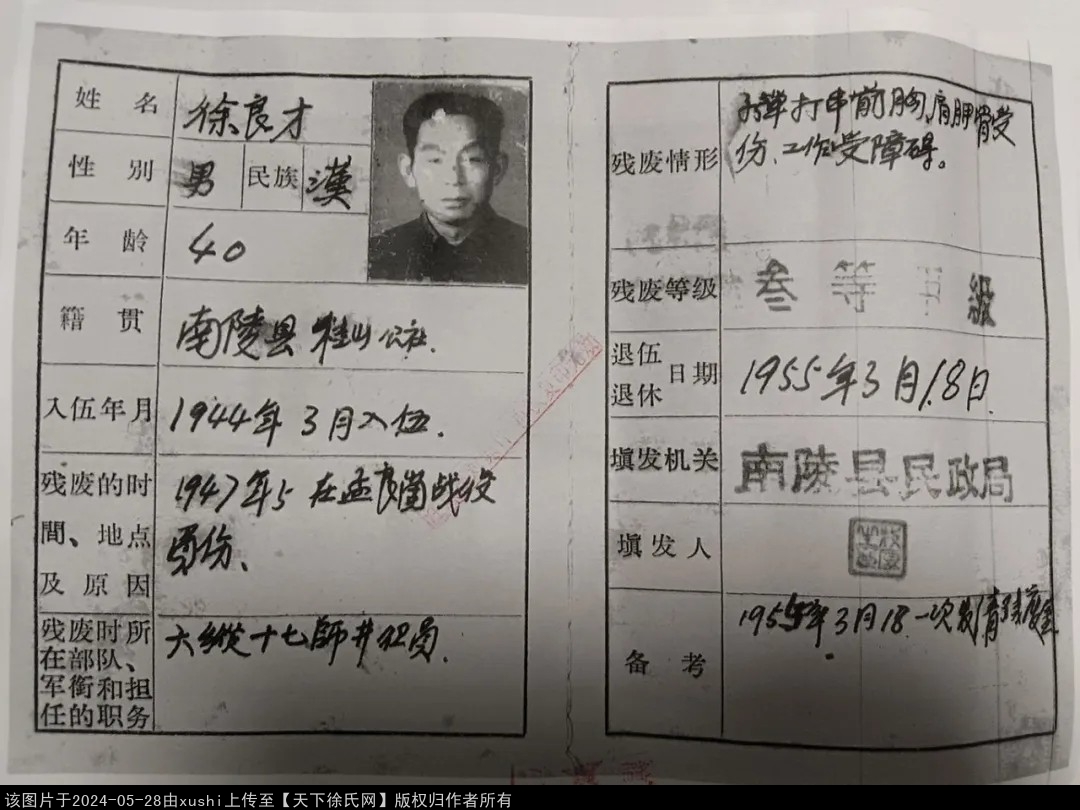 姓名 徐良才
性别 男 民族 漢
年龄 40
籍贯 南陵县 桂山 公社.
入伍年月 1944年 3月入伍.
残废的时 1947年5 在孟良崮战役
間、地点 受伤、
及原因
残废时所 六纵十七師 担担员.
在部队、
军衔和担
任的职务
残废情形 子弹打中前胸,肩胛骨受
伤、工作受障碍。
残废等级 叁等 级
退伍 退休 日期 1955年3月18日
填发机关 南陵县民政局
填发人
备考 1955年3月18 一次发清残废金
该图片于2024-05-28由xushi上传至【天下徐氏网】版权归作者所有